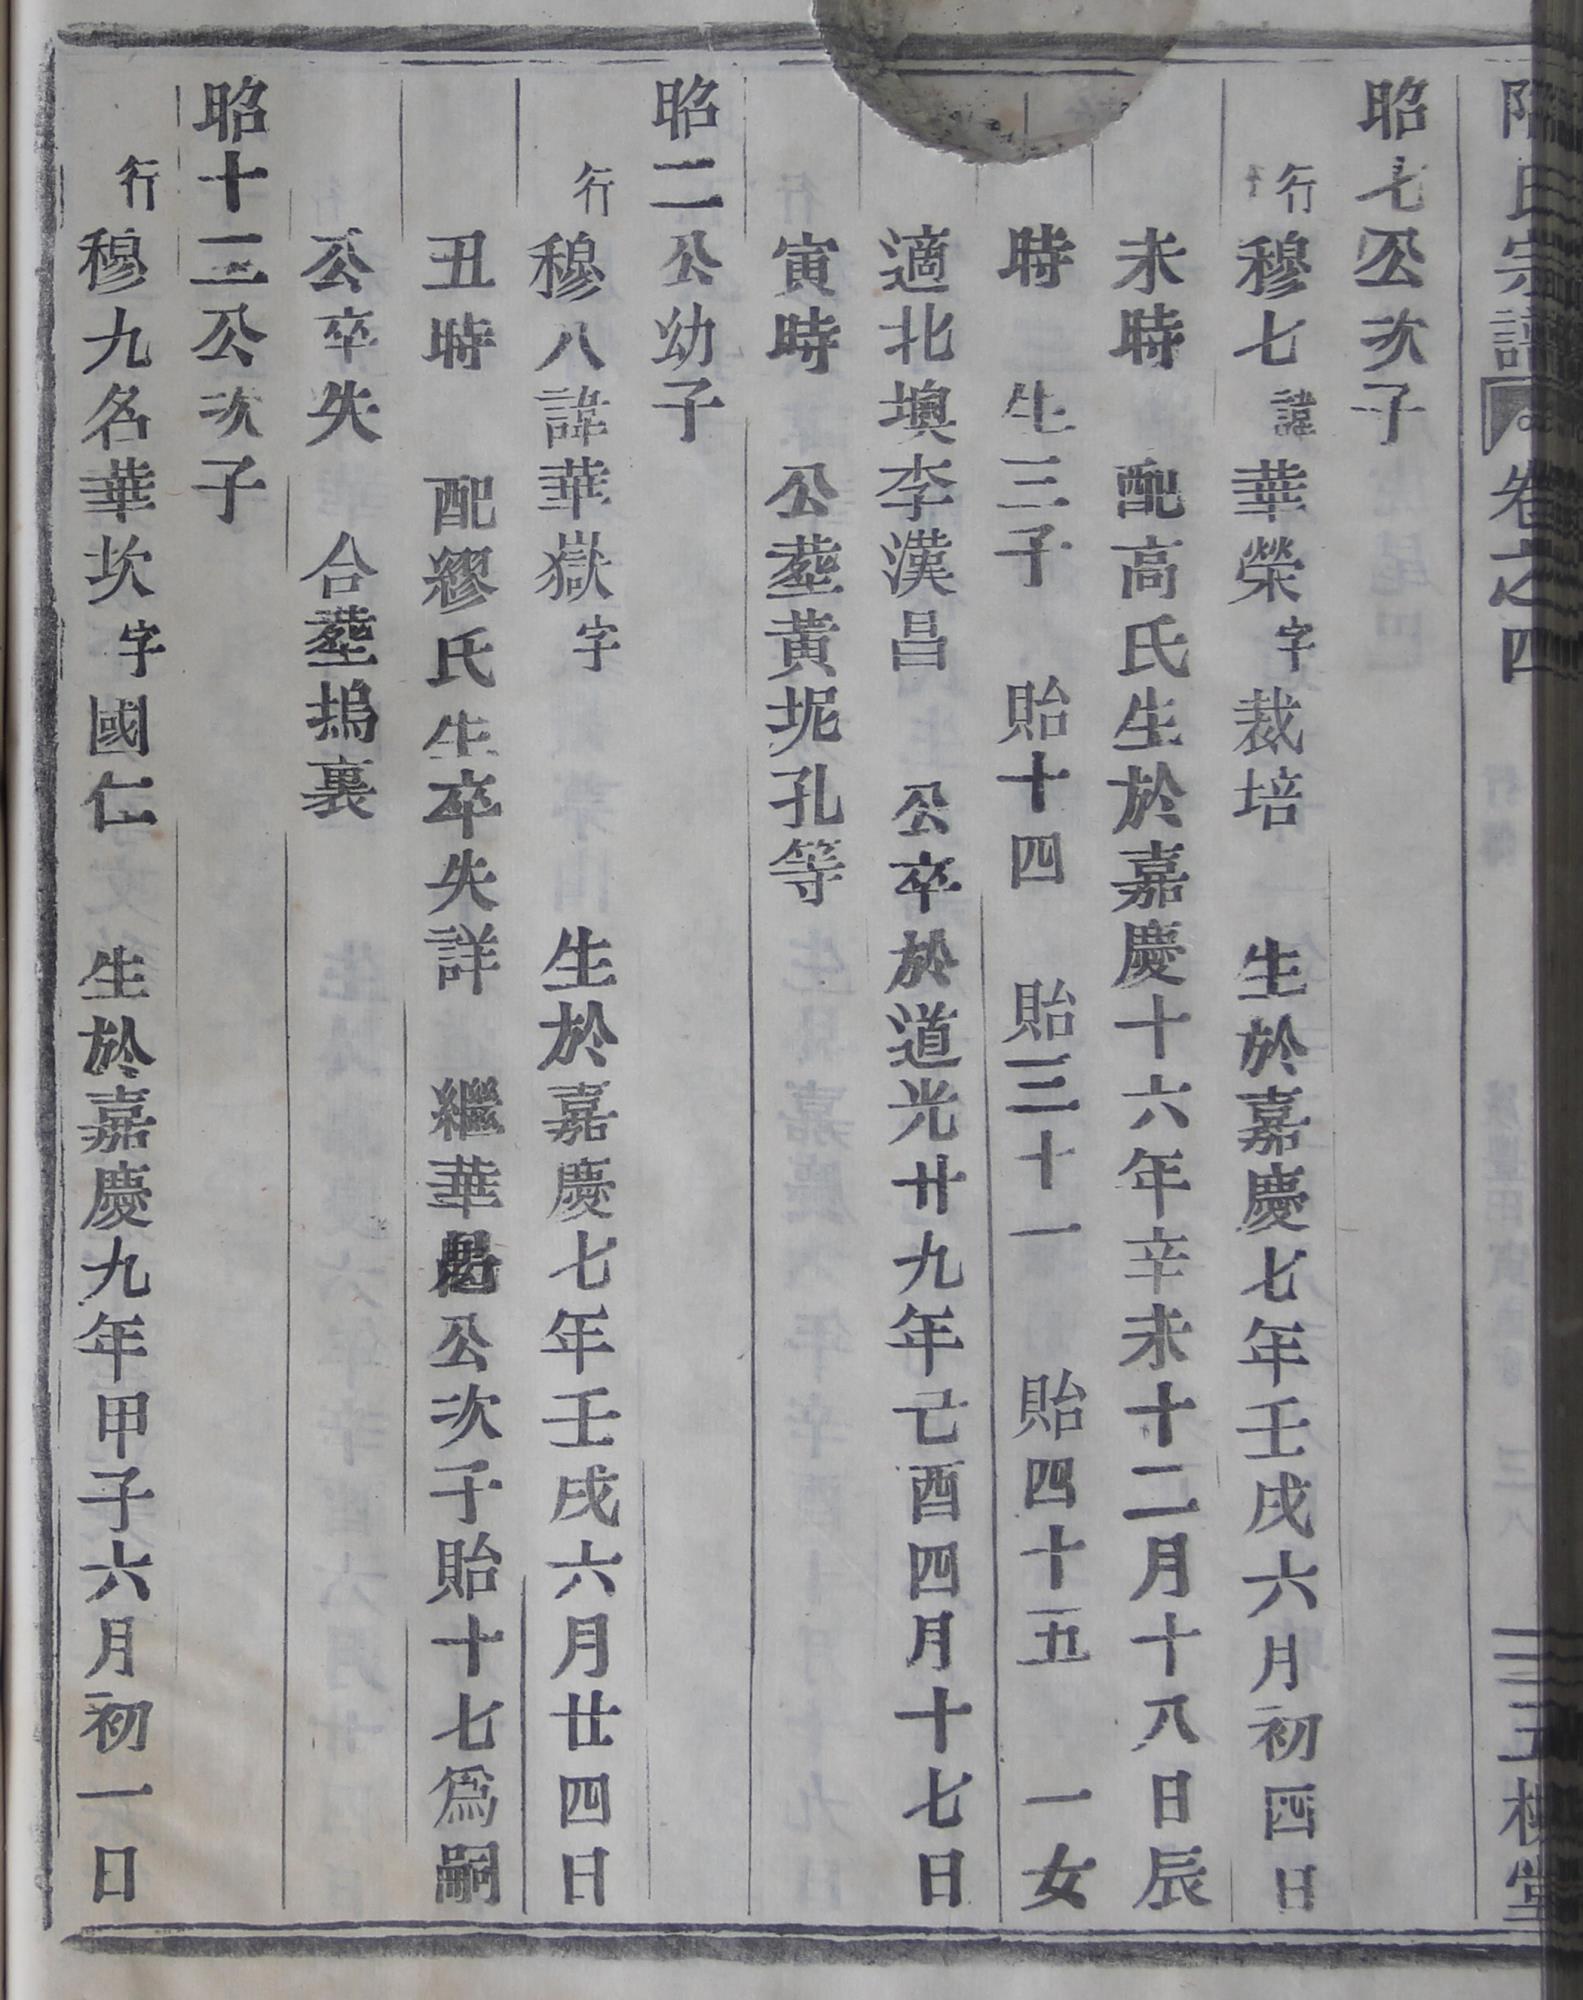 氏宗譜 卷之四
昭七公次子
行穆七諱華榮字裁培 生於嘉慶七年壬戌六月初四日
未時 配高氏生於嘉慶十六年辛未十二月十八日辰
時 生三子 貽十四 貽三十一 貽四十五 一女
適北墺李漢昌 公卒於道光廿九年己酉四月十七日
寅時 公塟黃坭孔等
昭二公幼子
行穆八諱華嶽字 生於嘉慶七年壬戌六月廿四日
丑時 配繆氏生卒失詳 繼華 公次子貽十七為嗣
公卒失 合塟塢裏
昭十三公次子
行穆九名華坎字國仁 生於嘉慶九年甲子六月初一日